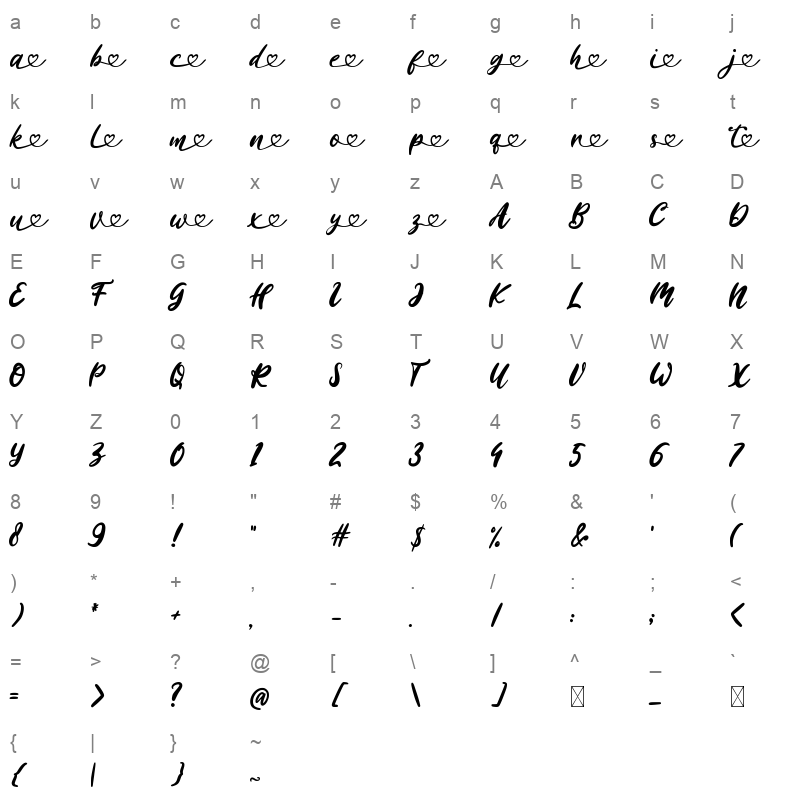 a b c d e f g h i j
a b c d e f g h i j
k l m n o p q r s t
k l m n o p q r s t
u v w x y z A B C D
u v w x y z A B C D
E F G H I J K L M N
E F G H I J K L M N
O P Q R S T U V W X
O P Q R S T U V W X
Y Z 0 1 2 3 4 5 6 7
Y Z 0 1 2 3 4 5 6 7
8 9 ! " # $ % & ' (
8 9 ! " # $ % & ' (
) * + , - . / : ; <
) * + , - . / : ; <
= > ? @ [ \ ] ^ _ `
= > ? @ [ \ ] _
{ | } ~
{ | } ~